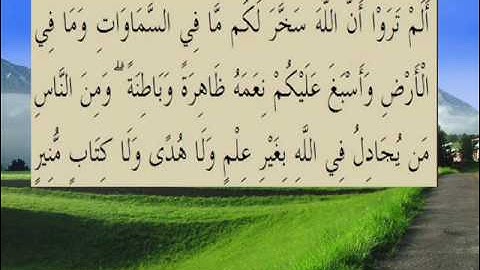 أَلَمْ تَرَوْا أَنَّ اللَّهَ سَخَّرَ لَكُم مَّا فِي السَّمَاوَاتِ وَمَا فِي
الْأَرْضِ وَأَسْبَغَ عَلَيْكُمْ نِعَمَهُ ظَاهِرَةً وَبَاطِنَةً ۗ وَمِنَ النَّاسِ
مَن يُجَادِلُ فِي اللَّهِ بِغَيْرِ عِلْمٍ وَلَا هُدًى وَلَا كِتَابٍ مُّنِيرٍ